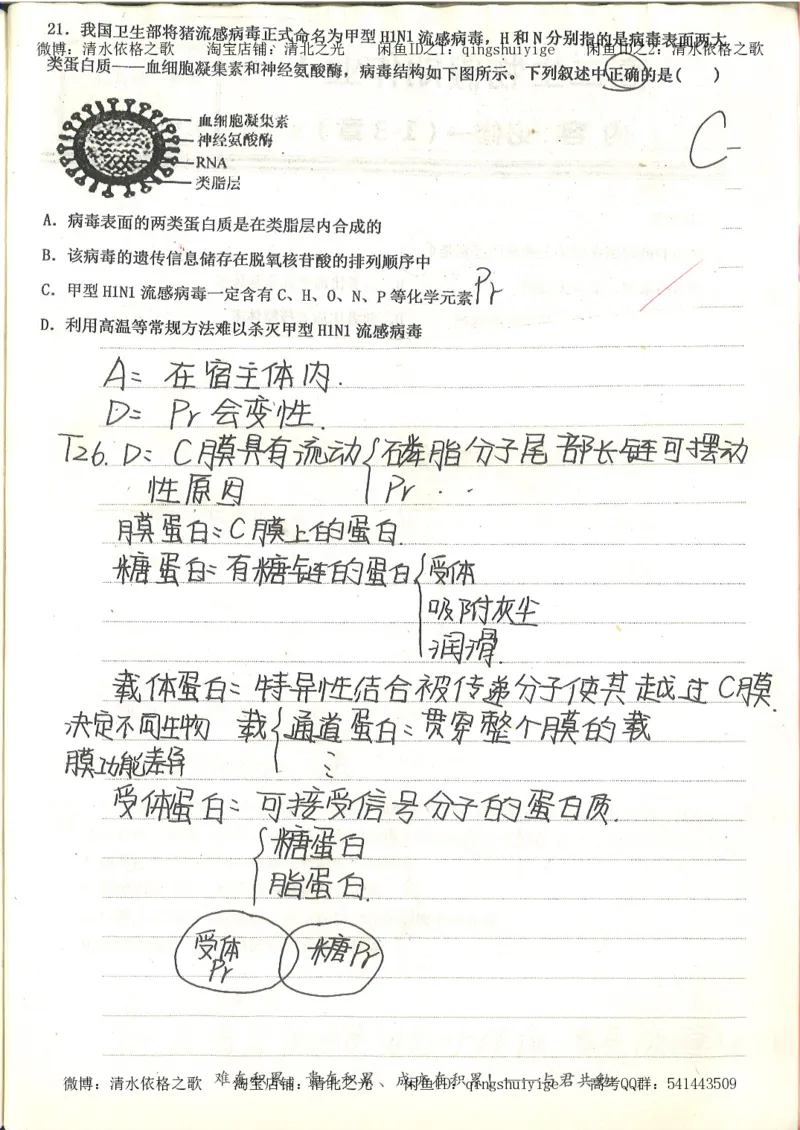 21．我国卫生部将猪流感病毒正式命名为甲型 H1N1 流感病毒，H 和 N 分别指的是病毒表面两大
微博：清水依格之歌 淘宝店铺：清北之光 闲鱼ID之1：qingshuiyige 闲鱼ID之2：清水依格之歌
类蛋白质——血细胞凝集素和神经氨酸酶，病毒结构如下图所示。下列叙述中正确的是( )
C
血细胞凝集素
神经氨酸酶
RNA
类脂层
A．病毒表面的两类蛋白质是在类脂层内合成的
B．该病毒的遗传信息储存在脱氧核苷酸的排列顺序中
C．甲型 H1N1 流感病毒一定含有 C、H、O、N、P 等化学元素 Pr
D．利用高温等常规方法难以杀灭甲型 H1N1 流感病毒
A：在宿主体内.
D：Pr会变性.
T26. D：C膜具有流动 { 磷脂分子尾部长链可摆动
性原因 Pr . .
膜蛋白：C膜上的蛋白.
糖蛋白：有糖链的蛋白 { 受体
吸附灰尘
润滑.
载体蛋白：特异性结合被传递分子使其越过C膜.
决定不同生物 载 { 通道蛋白：贯穿整个膜的载
膜功能差异 ⋮
受体蛋白：可接受信号分子的蛋白质.
{ 糖蛋白
脂蛋白.
受体 糖Pr
Pr
微博：清水依格之歌 淘宝店铺：清北之光 闲鱼ID：qingshuiyige 高考QQ群：541443509